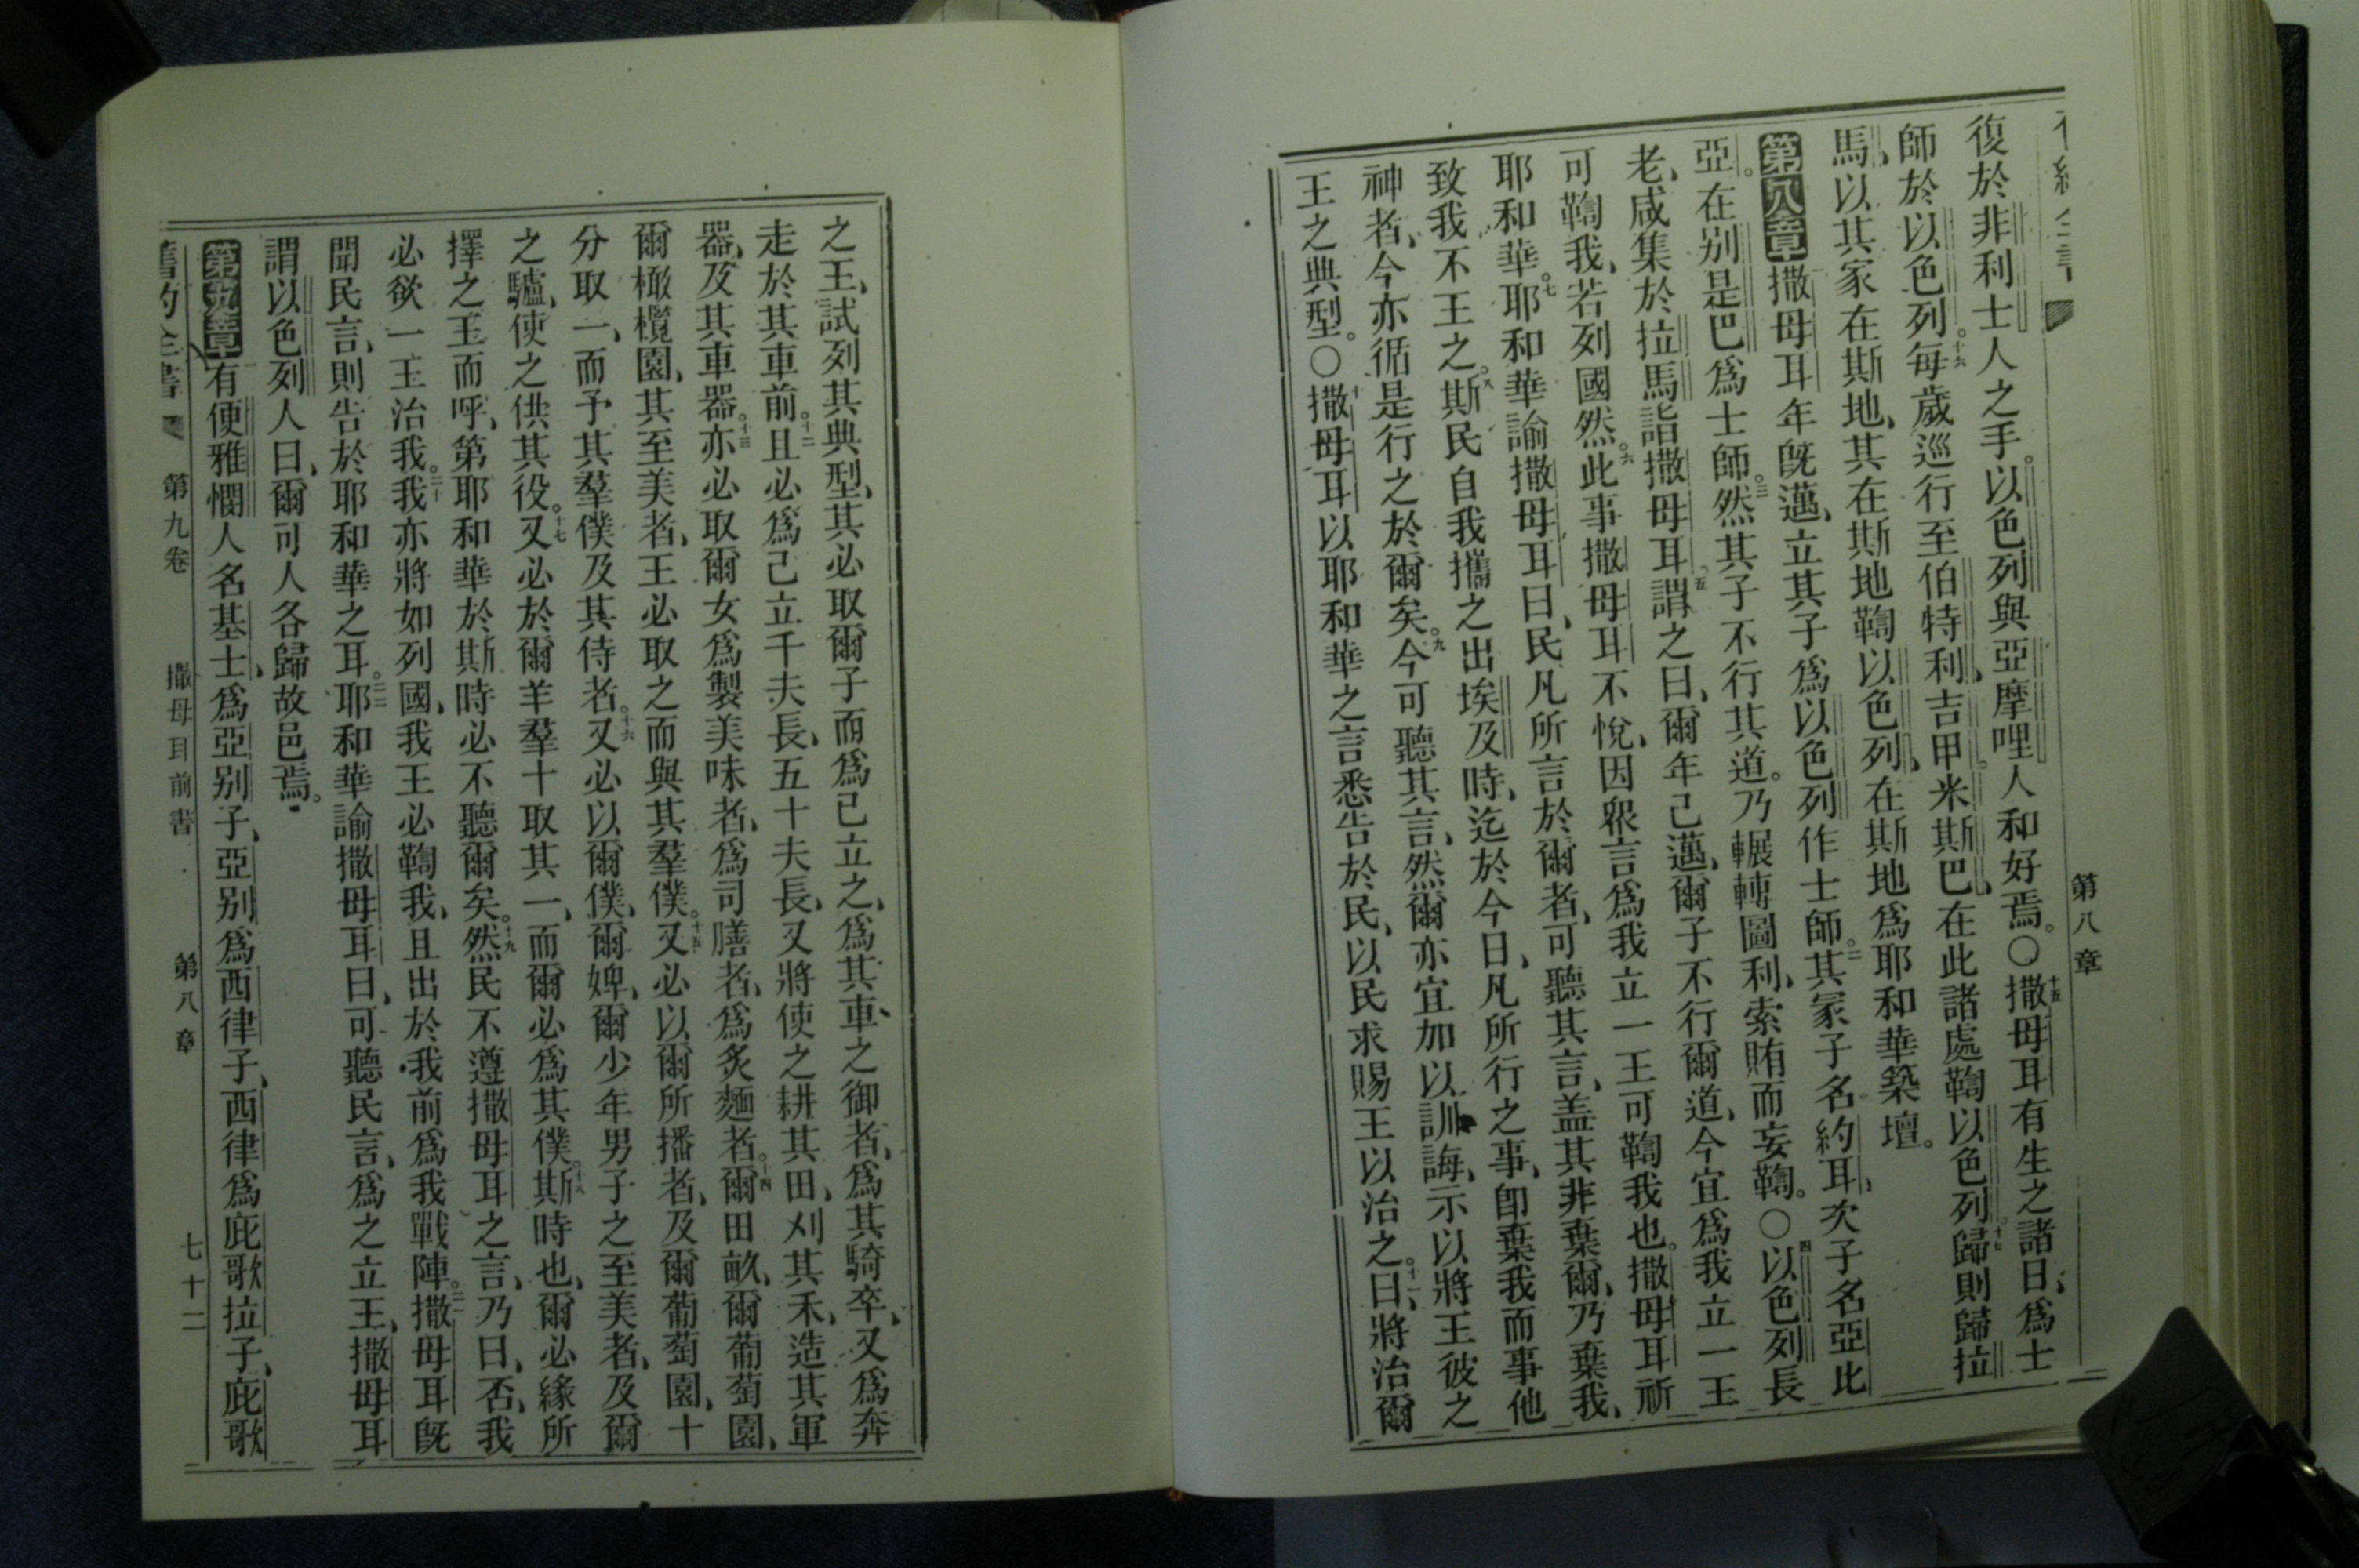 第八章
復於非利士人之手。以色列與亞摩哩人和好焉。〇十五撒母耳有生之諸日、爲士
師於以色列。十六每歲巡行至伯特利、吉甲、米斯巴、在此諸處鞫以色列。十七歸則歸拉
馬、以其家在斯地、其在斯地鞫以色列、在斯地爲耶和華築壇。
第八章撒母耳年旣邁、立其子爲以色列作士師。二其冢子名約耳、次子名亞比
亞。在别是巴爲士師。三然其子不行其道。乃輾轉圖利、索賄而妄鞫。〇四以色列長
老、咸集於拉馬詣撒母耳、五謂之曰、爾年已邁、爾子不行爾道、今宜爲我立一王
可鞫我、若列國然。六此事撒母耳不悅、因衆言爲我立一王可鞫我也。撒母耳祈
耶和華。七耶和華諭撒母耳曰、民凡所言於爾者、可聽其言、盖其非棄爾、乃棄我、
致我不王之。八斯民自我攜之出埃及時、迄於今日、凡所行之事、卽棄我而事他
神者、今亦循是行之於爾矣。九今可聽其言、然爾亦宜加以訓誨、示以將王彼之
王之典型。〇十撒母耳以耶和華之言悉告於民、以民求賜王以治之。十一曰、將治爾
之王、試列其典型、其必取爾子而爲己立之、爲其車之御者、爲其騎卒、又爲奔
走於其車前。十二且必爲己立千夫長、五十夫長、又將使之耕其田、刈其禾、造其軍
器、及其車器。十三亦必取爾女爲製美味者、爲司膳者、爲炙麵者。十四爾田畝、爾葡萄園、
爾橄欖園、其至美者、王必取之而與其羣僕。十五又必以爾所播者、及爾葡萄園、十
分取一、而予其羣僕及其侍者。十六又必以爾僕、爾婢、爾少年男子之至美者、及爾
之驢、使之供其役。十七又必於爾羊羣十取其一、而爾必爲其僕。十八斯時也、爾必緣所
擇之王而呼、第耶和華於斯時必不聽爾矣。十九然民不遵撒母耳之言、乃曰、否、我
必欲一王治我。二十我亦將如列國、我王必鞫我、且出於我前爲我戰陣。二一撒母耳旣
聞民言、則告於耶和華之耳。二二耶和華諭撒母耳曰、可聽民言、爲之立王、撒母耳
謂以色列人曰、爾可人各歸故邑焉。
第九章有便雅憫人名基士、爲亞别子、亞别爲西律子、西律爲庇歌拉子、庇歌
舊約全書 第九卷 撒母耳前書 第八章 七十二